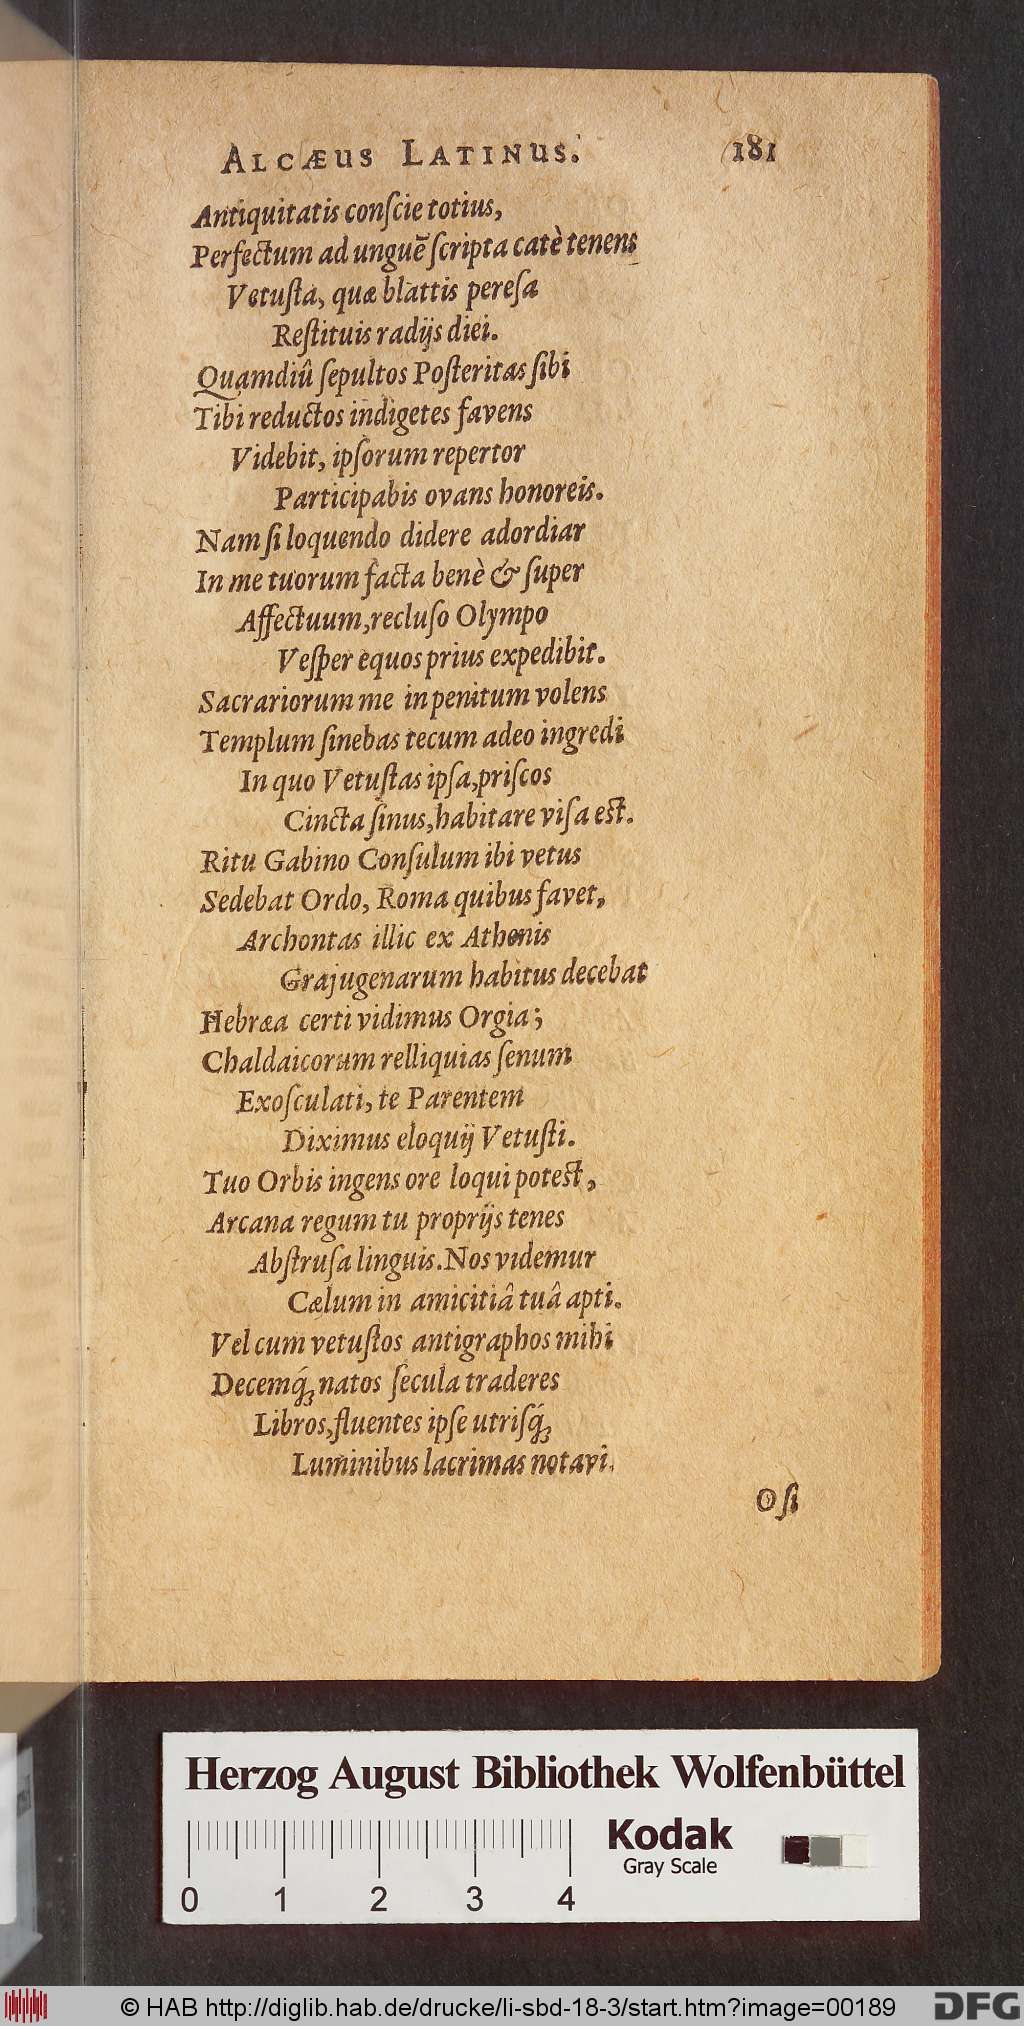 ALCÆUS LATINUS. 181
Antiquitatis conſcie totius,
Perfectum ad unguē ſcripta catè tenens
Vetuſta, quæ blattis pereſa
Reſtituis radijs diei.
Quamdiû ſepultos Poſteritas ſibi
Tibi reductos indigetes favens
Videbit, ipſorum repertor
Participabis ovans honoreis.
Nam ſi loquendo didere adordiar
In me tuorum facta benè & ſuper
Affectuum, recluſo Olympo
Veſper equos prius expedibit.
Sacrariorum me in penitum volens
Templum ſinebas tecum adeo ingredi
In quo Vetuſtas ipſa, priſcos
Cincta ſinus, habitare viſa eſt.
Ritu Gabino Conſulum ibi vetus
Sedebat Ordo, Roma quibus favet,
Archontas illic ex Athenis
Grajugenarum habitus decebat
Hebræa certi vidimus Orgia;
Chaldaicorum relliquias ſenum
Exoſculati, te Parentem
Diximus eloquij Vetuſti.
Tuo Orbis ingens ore loqui poteſt,
Arcana regum tu proprijs tenes
Abſtruſa linguis. Nos videmur
Cælum in amicitiâ tuâ apti.
Vel cum vetuſtos antigraphos mihi
Decemq́; natos ſecula traderes
Libros, fluentes ipſe utriſq́;
Luminibus lacrimas notavi.
O ſi
Herzog August Bibliothek Wolfenbüttel
Kodak
Gray Scale
0 1 2 3 4
© HAB http://diglib.hab.de/drucke/li-sbd-18-3/start.htm?image=00189
DFG